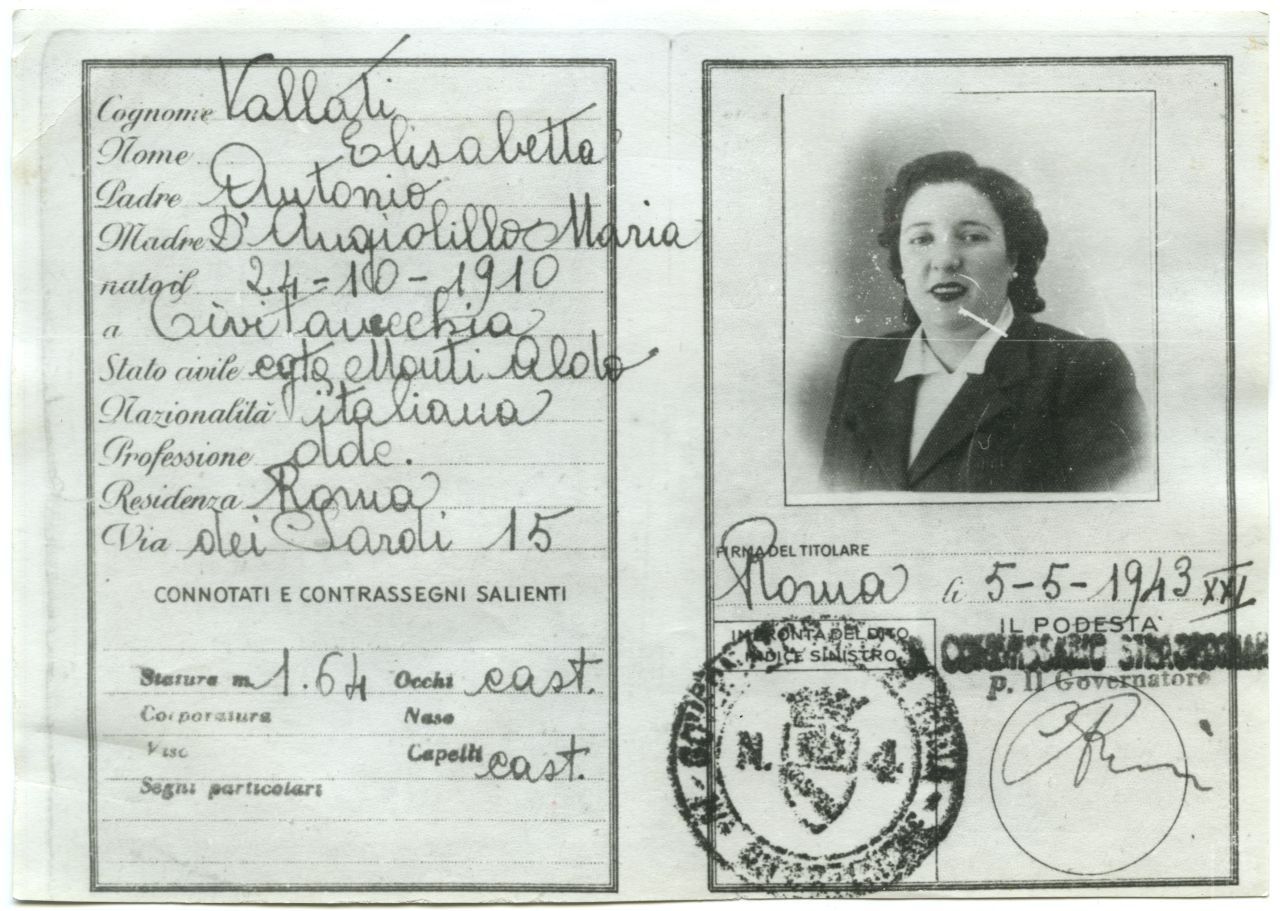 Cognome Vallati
Nome Elisabetta
Padre Antonio
Madre D'Angiolillo Maria
nato il 24=10-1910
a Civitavecchia
Stato civile cgta Monti Aldo
Nazionalità italiana
Professione ddc.
Residenza Roma
Via dei Sardi 15
CONNOTATI E CONTRASSEGNI SALIENTI
Statura m. 1.64 Occhi cast.
Corporatura Naso
Viso Capelli cast.
Segni particolari
FIRMA DEL TITOLARE
Roma li 5-5-1943 XXI
IL PODESTA'
IMPRONTA DEL DITO
INDICE SINISTRO
COMMISSARIO
p. Il Governatore
N. 4